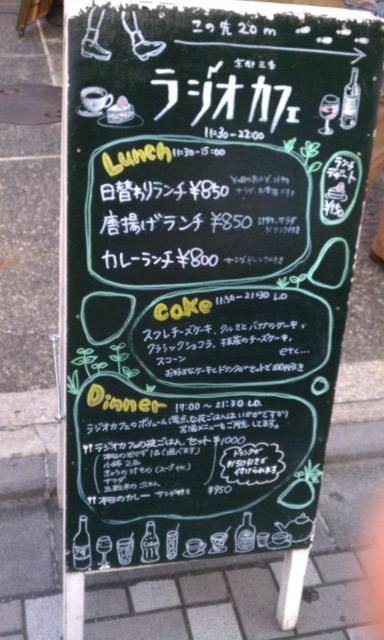 この先20m
京都三条
ラジオカフェ
11:30-22:00
Lunch 11:30-15:00
日替わりランチ ¥850
唐揚げランチ ¥850 サラダ ドリンク付き
カレーランチ ¥800 サラダ、ドリンク付き
ランチ
デザート
¥150
Cake 11:30-21:30 L.O
スフレチーズケーキ、クルミとバナナのケーキ、
クラシックショコラ、抹茶のチーズケーキ、
スコーン
etc...
お好きなケーキとドリンクがセットで100円引き
Dinner 17:00〜21:30 L.O.
ラジオカフェのボリューム満点な夜ごはんはいかがですか?
メニューもご用意してます。
ラジオカフェの夜ごはんセット ¥1000
本日のおかず1品(選べます)
小鉢2品
サラダ
五穀米のごはん
ドリンクが
付けられます
本日のカレー サラダ付き ¥950